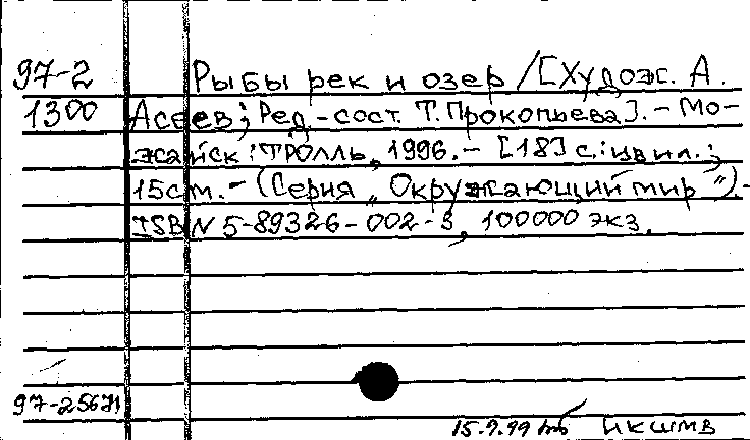 97-2 Рыбы рек и озер / [Худож. А.
1300 Асеев; Ред.-сост. Т. Прокопьева]. - Мо-
жайск: ТРОЛЛЬ, 1996. - [18] с.: цв. ил.;
15 см. - (Серия „Окружающий мир"). -
ISBN 5-89326-002-3, 100000 экз.
97-25671
15.9.99 ИКШМВ